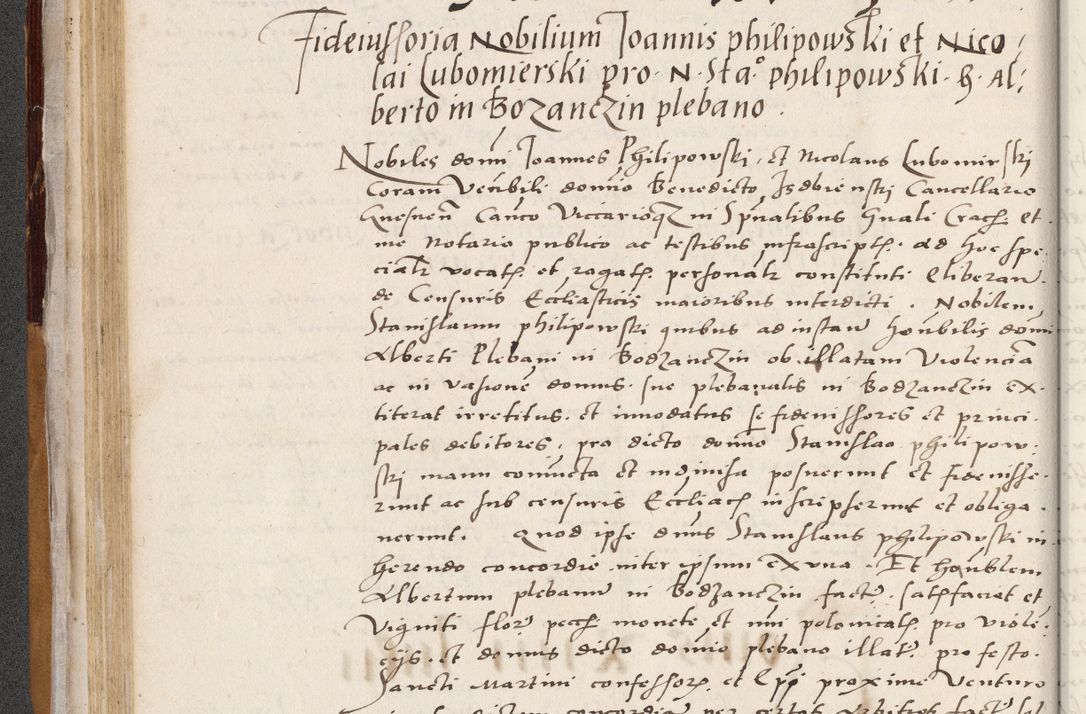 Fideiussoria Nobilium Joannis philipowski et Nico
lai Lubomierski pro N. Sta° philipowski. H. Al:
berto in Bozanczin plebano.
Nobiles domi Joannes Philipowski, et Nicolaus Lubomirski
Coram Venbili domino Benedicto Izdbienski Cancellario
Gnesnen Canco Viccarioqz in Spualibus gnali Crach et
me Notario publico ac testibus infrascriptis. ad hoc spe
cialr vocat. et rogat. personalr constituti Eliberan
de Censuris Eccliasticis maioribus interdicti. Nobilem
Stanislaum philipowski quibus ad instan honbilis domi
Alberti Plebani in Bodzanczin ob illatam Violencia
ac in vasione domus. sue plebanalis in Bodzanczin ex
titerat irretitus. et innodatus se fideiussores et princi
pales debitores, pro dicto domino Stanislao philipow
ski manu coniuncta et indiuisa posuerunt et fideiusse
runt ac sub censuris Eccliach inscripserunt et obliga
uerunt. Quod ipse dnus Stanislaus philipowski in
herendo concordie inter ipsum ex vna. Et honblem
Albertum plebanu in Bodzanczin fact. satisfaciet et
Viginti flor pecch monete et nui polonicali pro violē
cijs. et domus dicto domino plebano illat. pro festo
Sancti Martini confessor. et Epi proxime Venturo
concordia per certos Arbitros fact